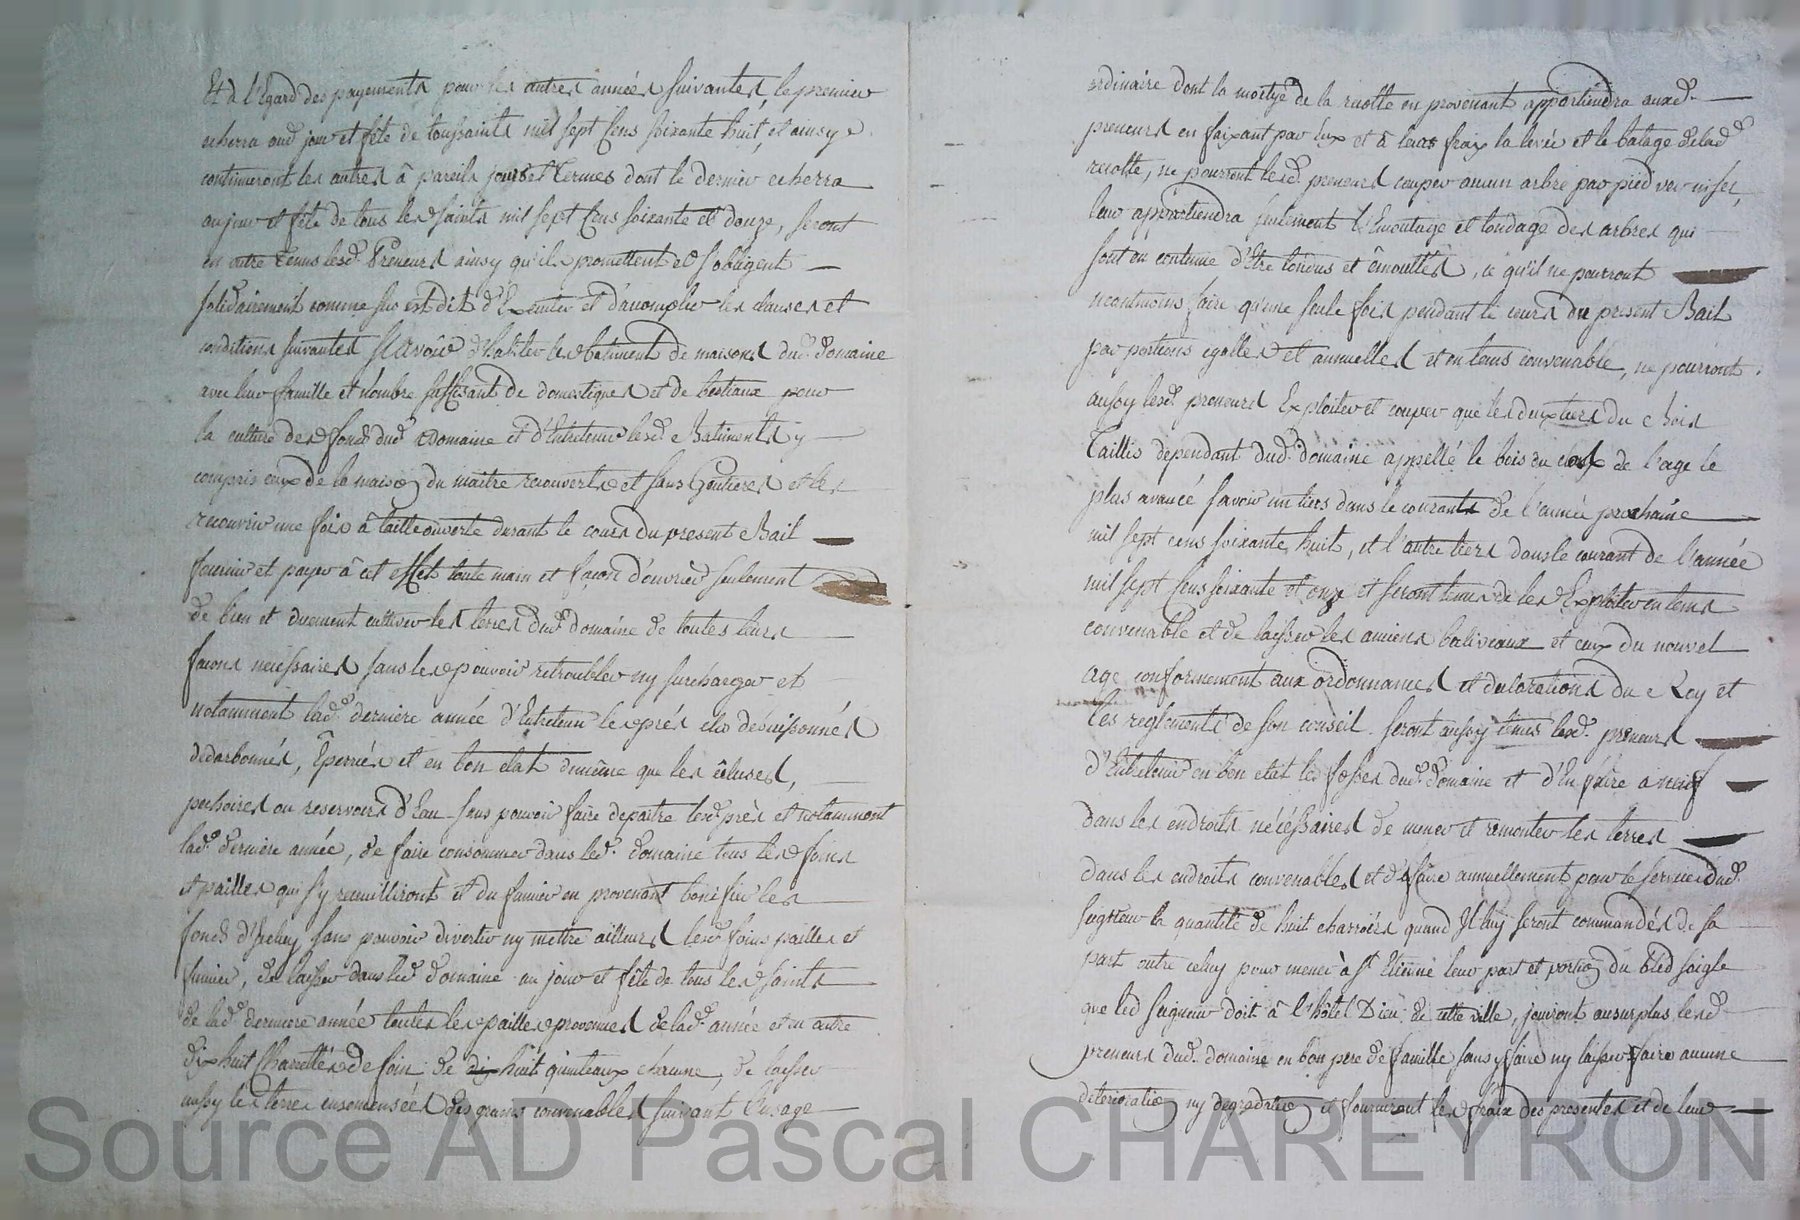 Et à l'Egard des payements pour les autres années suivantes, le premier
echerra aud. jour et fête de toussaints mil sept Cens soixante huit, et ainsy
continueront les autres à pareils jours et termes dont le dernier echerra
au jour et fête de tous les saints mil sept Cens soixante et douze, seront
en outre tenus lesd. Preneurs ainsy qu'ils promettent et s'obligent
solidairement comme sus est dit d'Executer et d'accomplir les clauses et
conditions suivantes sçavoir d'habiter les batiments de maisons dud. domaine
avec leur famille et nombre suffisant de domestiques et de bestiaux pour
la culture des fonds dud. Domaine et d'Entretenir lesd. Batiments y
compris ceux de la maison du maitre recouverts et sans Goutieres et les
recouvrir une fois à taille ouverte durant le cours du present Bail
fournir et payer à cet effet toute main et façon d'ouvrier seulement
de bien et duement cultiver les terres dud. domaine de toutes leurs
façons necessaires sans les pouvoir retroubler ny surcharger et
notamment lad. derniere année d'Entretenir les prés clos debuissonnés
dedarbonnés, Eperriés et en bon etat de même que les écluses,
pechoires ou reservoirs d'Eau sans pouvoir faire depaitre lesd. près et notamment
lad. derniere année, de faire consommer dans led. domaine tous les foins
et pailles qui s'y recueilliront et du fumier en provenant bonifier les
fonds d'Iceluy sans pouvoir divertir ny mettre ailleurs lesd. foins pailles et
fumier, de laisser dans led. domaine au jour et fête de tous les saints
de lad. derniere année toutes les pailles provenues de lad. année et en outre
dix huit Charettées de foin de dix huit quinteaux chacune, de laisser
aussy les terres ensemensées des grains convenables suivant l'usage
ordinaire dont la moitye de la recolte en provenant appartiendra auxd.
preneurs en faixant par eux et à leurs fraix la levée et le batage de lad.
recolte, ne pourront lesd. preneurs couper aucun arbre par pied ver ni sec,
leur appartiendra seulement l'Emoutage et tondage des arbres qui
sont en coutume d'être tondus et émouttés, ce qu'il ne pourront
neantmoins faire qu'une seule fois pendant le cours du present Bail
par portions egalles et annuelles et en tems convenable, ne pourront
aussy lesd. preneurs Exploiter et couper que les deux tiers du Bois
Taillis dependant dud. domaine appellé le bois du de l'age le
plus avancé savoir un tiers dans le courant de l'année prochaine
mil sept cens soixante huit, et l'autre tiers dans le courant de l'année
mil sept Cens soixante et onze et seront tenus de les Exploiter en tems
convenable et de laisser les anciens baliveaux et ceux du nouvel
age conformement aux ordonnances et declarations du Roy et
les reglements de son conseil. seront aussy tenus lesd. preneurs
d'Entretenir en bon etat les fosses dud. domaine et d'En faire a neuf
dans les endroits nécéssaires de mener et remonter les terres
dans les endroits convenables et de faire annuellement pour le service dud.
seigneur la quantité de huit charrois quand Il luy seront commandés de sa
part outre celuy pour mener à St Etienne leur part et portion du bled soigle
que led seigneur doit à l'hôtel Dieu de cette ville, jouiront au surplus lesd.
preneurs dud. domaine en bon pere de famille sans y faire ny laisser faire aucune
deterioration ny degradation et fourniront les fraix des presentes et de leur
Source AD Pascal CHAREYRON